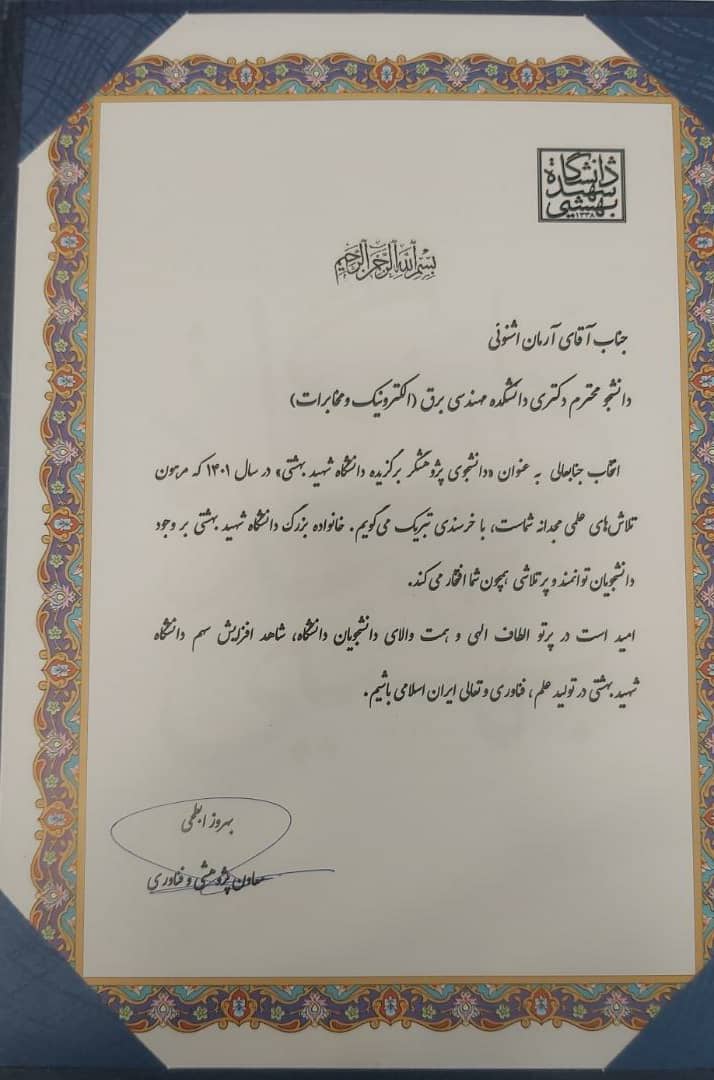 دانشگاه
شهید
بهشتی
۱۳۳۸
بسم الله الرحمن الرحیم
جناب آقای آرمان اشنوئی
دانشجو محترم دکتری دانشکده مهندسی برق (الکترونیک و مخابرات)
انتخاب جنابعالی به عنوان «دانشجوی پژوهشگر برگزیده دانشگاه شهید بهشتی» در سال ۱۴۰۱ که مرهون
تلاش‌های علمی مجدانه شماست، با خرسندی تبریک می‌گویم. خانواده بزرگ دانشگاه شهید بهشتی بر وجود
دانشجویان توانمند و پر تلاشی همچون شما افتخار می‌کند.
امید است در پرتو الطاف الهی و همت والای دانشجویان دانشگاه، شاهد افزایش سهم دانشگاه
شهید بهشتی در تولید علم، فناوری و تعالی ایران اسلامی باشیم.
بهروز ابطحی
معاون پژوهشی و فناوری